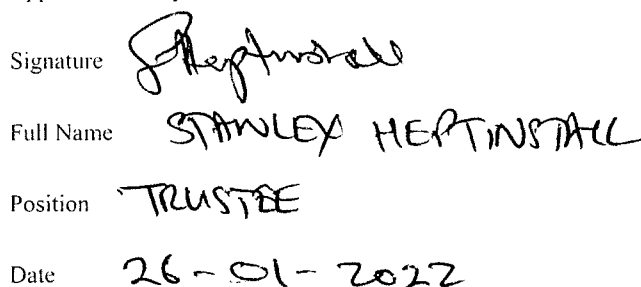 Signature SHeptinstall
Full Name STANLEY HEPTINSTALL
Position TRUSTEE
Date 26-01-2022